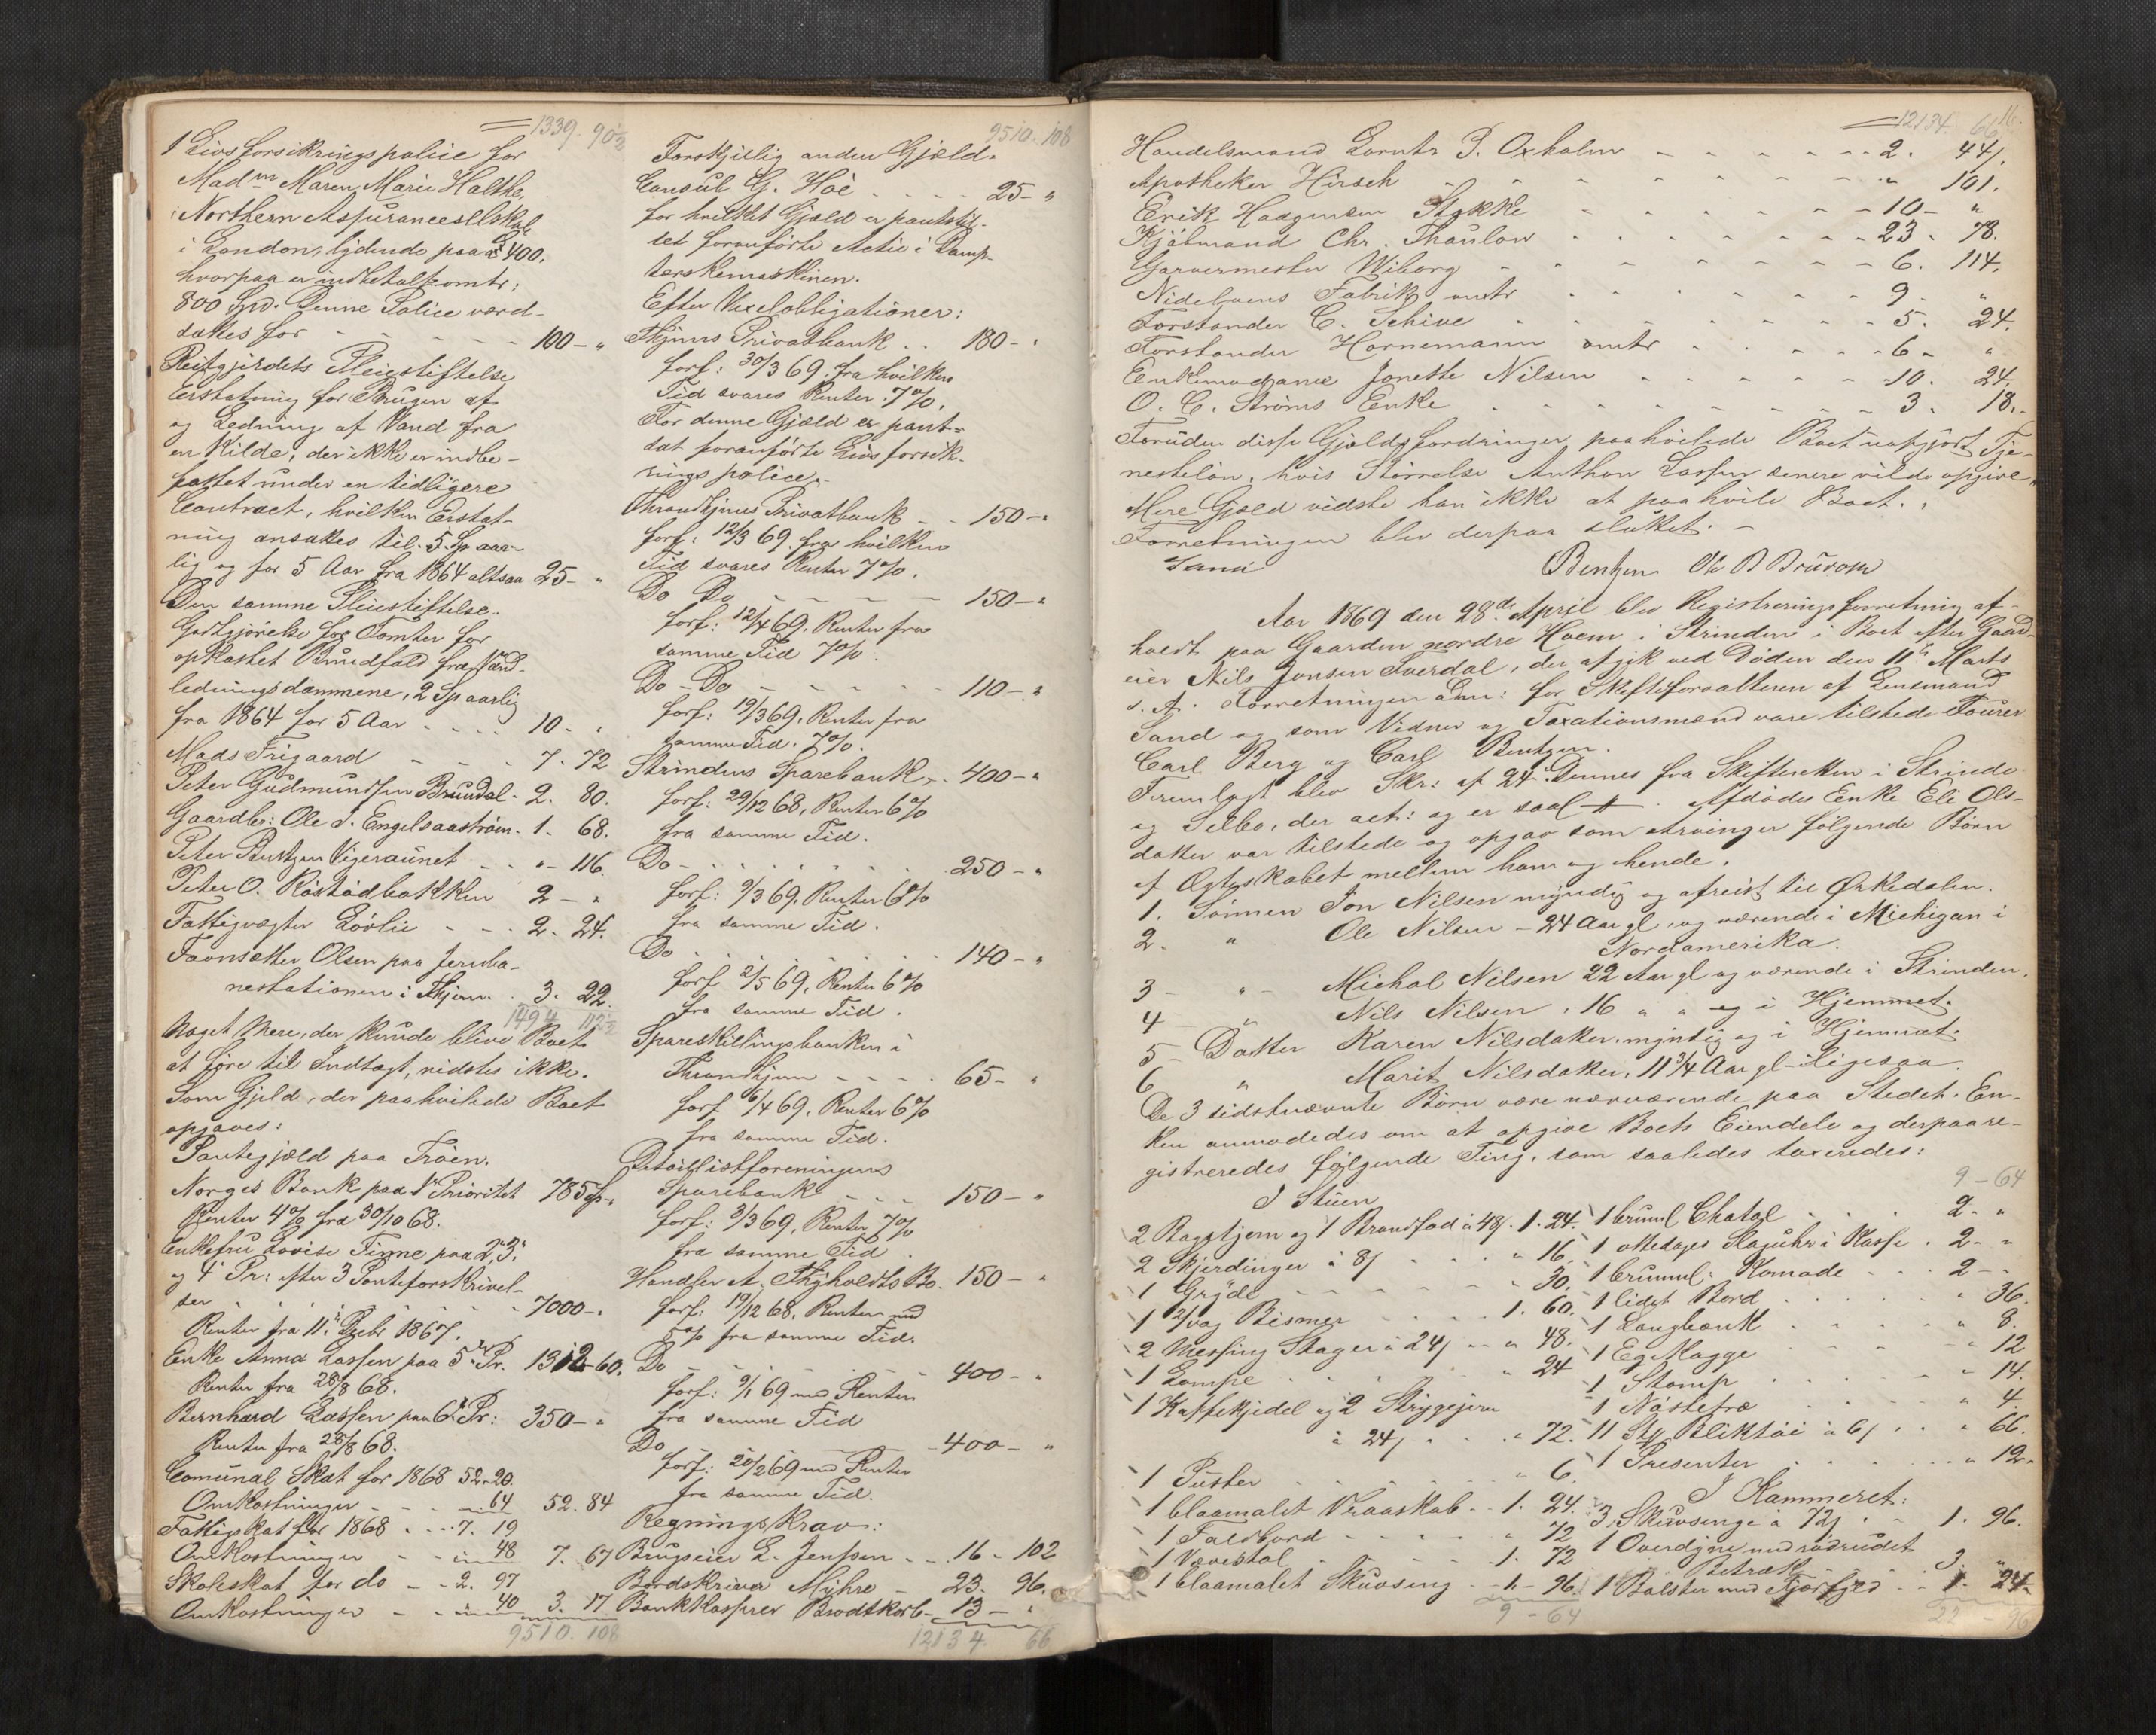 1339. 90½
1 Livsforsikringspolice for
Madm Maren Marie Halthe,
i Northern Assurance selskab
i London, lydende paa £ 400.
hvorpaa er indbetalt omtr:
800 Spd. Denne Police værd-
sættes for - - - 100 - "
Reitgjerdets Pleiestiftelse
Erstatning for Brugen af
og Ledning af Vand fra
en Kilde, der ikke er indbe-
fattet under en tidligere
Contract, hvilken Erstat-
ning ansættes til 5 Sp aar-
lig og for 5 Aar fra 1864 altsaa 25 - "
Den samme Pleiestiftelse.
Godtgjörelse for Tomter for
opkastet Bundfald fra Vand-
ledningsdammene, 2 Sp aarlig
fra 1864 for 5 Aar - - - 10 - "
Mads Trigaard - - - 7 - 72
Peter Gudmundsen Brundal - 2. 80.
Gaardbr: Ole J. Engelsaastrøen - 1. 68.
Peter Bentzen Vigeraunet - - " - 116.
Peter O. Röstadbakken 2 - "
Fattigvægter Lövlie - - - 2. 24.
Favnsætter Olsen paa Jernba-
nestationen i Thjem. - 3. 22.
1494 112½
Noget Mere, der kunde blive Boet
at före til Indtægt, vidstes ikke.
Som Gjeld, der paahvilede Boet
opgaves:
Pantegjæld paa Tröen.
Norges Bank paa 1ste Prioritet 785 Sp. "
Renter 4% fra 30/10 68.
Enkefru Lovise Finne paa 2, 3,
og 4 Pr: efter 3 Panteforskrivel-
ser - - - - 7000 - "
Renter fra 11 Decbr 1867.
Enke Anna Lassen paa 5te Pr. 1312 - 60.
Renter fra 28/8 68.
Bernhard Lassen paa 6te Pr: 350 - "
Renter fra 28/8 68.
Comunal Skat for 1868 52 - 20.
Omkostninger - - - " - 64 52. 84
Fattigskat for 1868 - - 7. 19
Omkostninger - - " 48 7. 67
Skoleskat for do - - 2. 97
Omkostninger - - " 40 3. 17
9510. 108
9510. 108
Forskjellig anden Gjæld.
Consul G. Höe - - - 25 - "
for hvilket Gjæld er pantstil-
let foranförte Actie i Damp-
tærskemaskinen.
Efter Vexelobligationer:
Thjems Privatbank - - 180 - "
forf: 30/3 69, fra hvilken
Tid svares Renter 7%.
For denne Gjæld er pant-
sat foranförte Livsforsik-
ringspolice.
Throndhjems Privatbank - - 150 - "
forf: 12/3 69. fra hvilken
Tid svares Renter 7%.
Do Do - - - - 150 - "
forf: 12/4 69. Renter fra
samme Tid 7%.
Do - Do - - - - 110 - "
forf: 19/3 69. Renter fra
samme Tid. 7%.
Strindens Sparebank - 400 - "
forf: 29/12 68, Renter 6%
fra samme Tid.
Do - - - - 250 - "
forf: 9/3 69, Renter 6%
fra samme Tid.
Do - - - - 140 - "
forf 2/5 69, Renter 6%
fra samme Tid.
Spareskillingsbanken i
Throndhjem - - - 65 - "
forf 6/4 69, Renter 6%
fra samme Tid.
Detaillistforeningens
Sparebank - - - 150 - "
forf: 3/3 69, Renter 7%
fra samme Tid.
Handler A. Thyholdts Bo. 150 - "
forf: 19/12 68, Renter med
5% fra samme Tid.
Do - - - - 400 - "
forf: 9/1 69 med Renter
fra samme Tid
Do - - - - 400 - "
forf: 20/2 69 med Renter
fra samme Tid.
Regningskrav:
Brugseier L. Jenssen - - 16 - 102
Bordskriver Myhre - 23. 96.
Bankkasserer Brodtkorb - 13 - "
12134. 66
12134 66
16.
Handelsmand Lorntz P. Oxholm - - - 2. 44.
Apotheker Hirsch - - - " 101.
Erik Haagensen Stokke - - - 10 - "
Kjöbmand Chr. Thaulow - - - 23 - 78.
Garvermester Wiborg - - - 6. 114.
Nidelvens Fabrik omtr - - - 9 - "
Forstander C. Schive - - - 5. 24.
Forstander Hornemann omtr - - - 6 - "
Enkemadame Jonette Nilsen - - - 10. 24.
O. C. Ströms Enke - - - 3. 18.
Foruden disse Gjældsfordringer paahvilede Boet uopgjort Tje-
nestelön, hvis Störrelse Anthon Lassen senere vilde opgive.
Mere Gjæld vidste han ikke at paahvile Boet.
Forretningen blev derpaa sluttet. -
Sand Bentzen Ole B Bruvold
Aar 1869 den 28de April blev Registreringsforretning af-
holdt paa Gaarden nordre Hoem i Strinden i Boet efter Gaard-
eier Nils Jonsen Tverdal, der afgik ved Döden den 11te Marts
d. A. Forretningen adm: for Skifteforvalteren af Lensmand
Sand og som Vidner og Taxationsmænd vare tilstede Fourer
Carl Berg og Carl Bentzen.
Fremlagt blev Skr: af 24 Dennes fra Skifteretten i Strinde
og Selbo, der act: og er saal #. Afdödes Enke Eli Ols-
datter var tilstede og opgav som Arvinger fölgende Börn
af Ægteskabet mellem ham og hende.
1. Sönnen Jon Nilsen myndig og afreist til Ørkedalen.
2. " Ole Nilsen - 24 Aar gl. og værende i Michigan i
Nordamerika.
3 - " - Michal Nilsen 22 Aar gl og værende i Strinden.
4 " Nils Nilsen, 16 " " og i Hjemmet.
5 - Datter Karen Nilsdatter, myndig og i Hjemmet.
6 " Marit Nilsdatter, 11 3/4 Aar gl - ligesaa.
De 3 sidstnævnte Börn vare nærværende paa Stedet. En-
ken anmodedes om at opgive Boets Eiendele og derpaa re-
gistreredes fölgende Ting, som saaledes taxeredes:
I Stuen
2 Baggtjern og 1 Brandfad à 48 - 1 - 24.
2 Skjerdinger à 8 - - " 16.
1 Gryde - - - " 30.
1 2/vog Bismer - - 1. 60.
2 Messing Stager à 24 - - " 48.
1 Lampe - - - " 24
1 Kaffekjedel og 2 Strygejern
à 24 - - - " 72.
1 Puster - - - " 6.
1 blaamalet Vraaskab - - 1. 24.
1 Faldbord - - - " 72
1 Vævestol - - - 1. 72
1 blaamalet Skuvseng - - 1 - 96.
9 - 64
9 - 64
1 bruunl Chatol - - - 2 - "
1 ottedages Slaguhr i Kasse - 2 - "
1 bruunl: Komode - - - 2 - "
1 lidet Bord - - - " 36.
1 Langbænk - - - " 8.
1 Eg Kagge - - - " 12
1 Stamp - - - " 14.
1 Nöstetræ - - - " 4.
11 Sty Bliktöi à 6 - - " 66.
1 Presenter - - - " 12.
I Kammeret:
3 Skuvsenge à 72 - - 1. 96.
1 Overdyne med rödrudet
Betræk - - - 3. "
1 Bolster med Fjærfyld - - 1. 24.
22 - 96